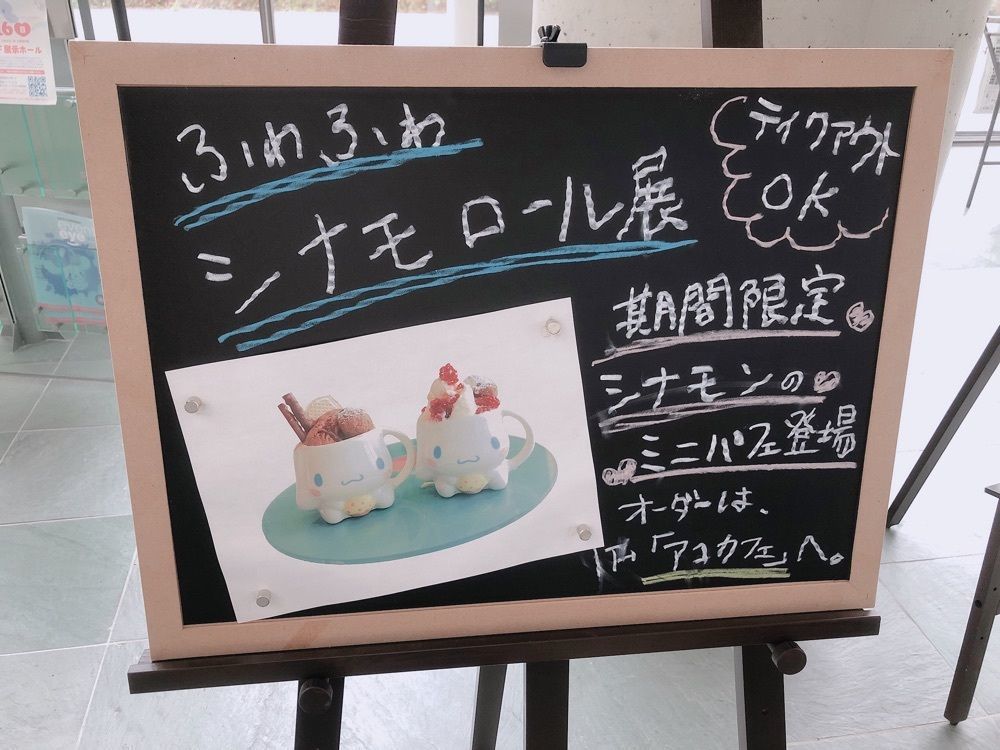 ふわふわ
シナモロール展
テイクアウト
OK
期間限定
シナモンの
ミニパフェ登場
オーダーは、
「アコカフェ」へ。
展示ホール